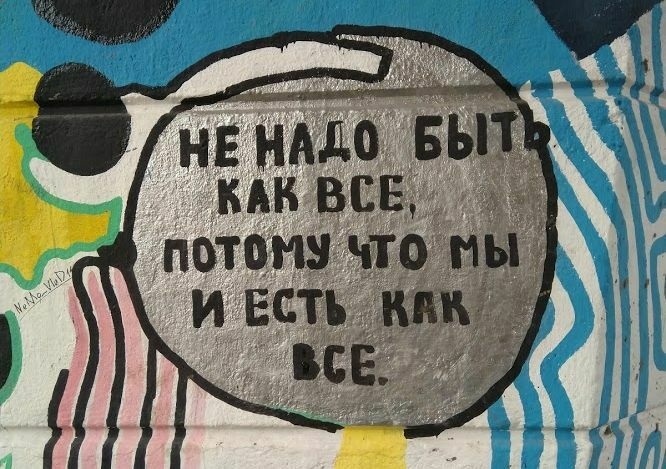 НЕ НАДО БЫТЬ
КАК ВСЕ,
ПОТОМУ ЧТО МЫ
И ЕСТЬ КАК
ВСЕ.